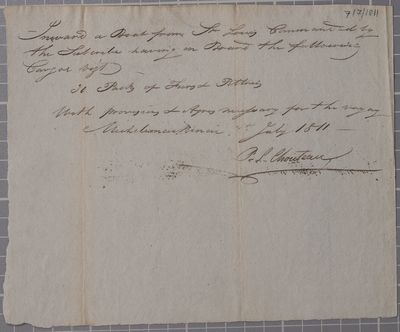 7/7/1811
Inward a Boat from St Louis Commanded by
the Subscribe having on Board the following
Cargo vizt
30 Packs of Furs & Peltries
With provisions & necessary for the voyage
Michilimackinac 7 July 1811
P. L. Chouteau